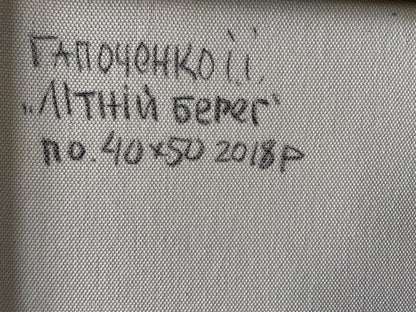 Гапоченко Ї.Ї.
„Літній берег"
по. 40x50 2018р